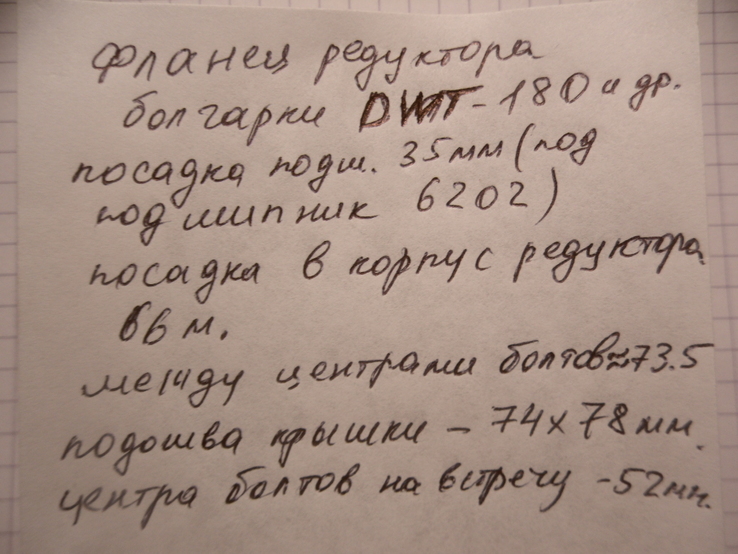 фланец редуктора
болгарки DWT-180 и др.
посадка подш. 35мм (под
подшипник 6202)
посадка в корпус редуктора
66 м.
между центрами болтов≈73.5
подошва крышки – 74х78мм.
центра болтов на встречу -52мм.